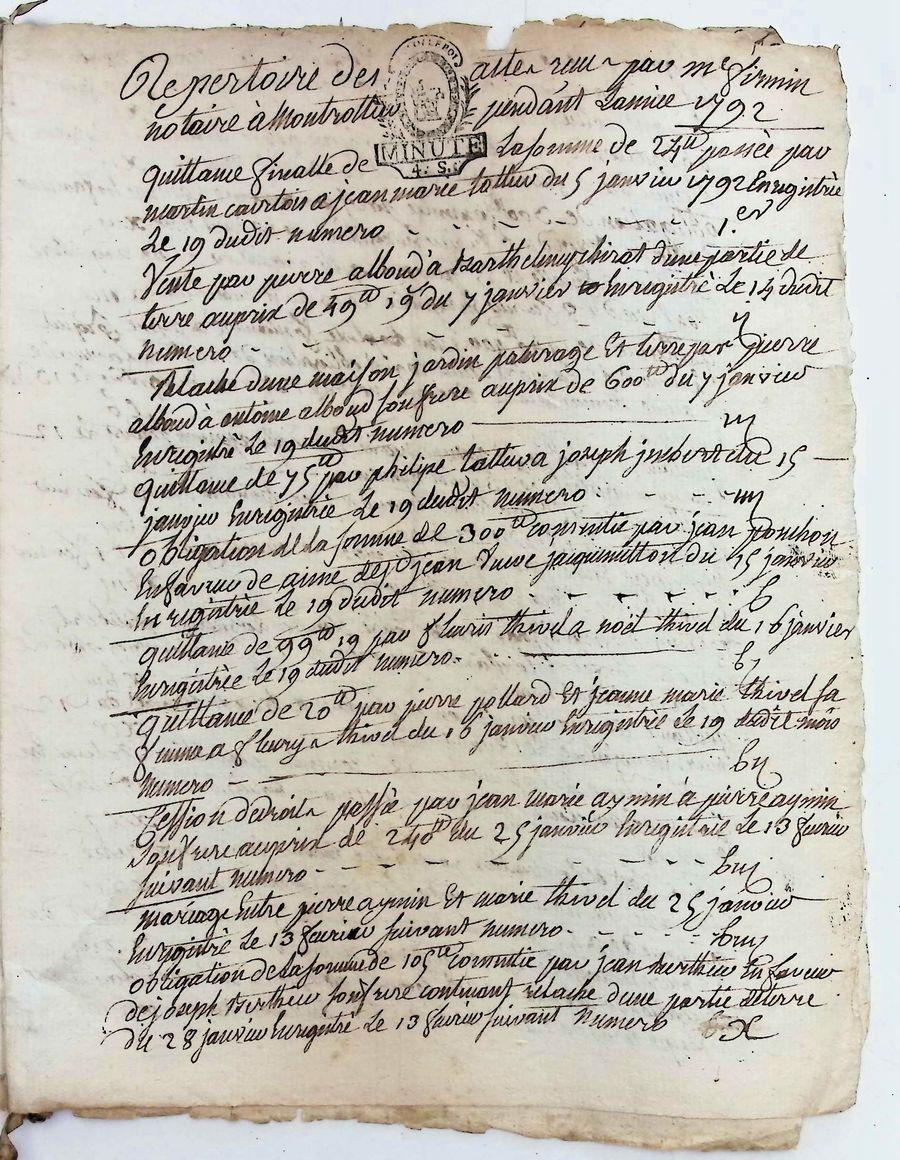 Repertoire des actes reçu par me firmin
notaire à Montrottier pendant Lannée 1792
MINUTE
4. S.
quittance finalle de La somme de 24tt passée par
martin courtois a jean marie tattu du 5 janvier 1792 Enregistrée
Le 19 dudit numero 1.er
Vente par pierre alboud à Barthelemy chirat d'une partie de
terre au prix de 49tt 19s du 7 janvier Enregistré Le 14 dudit
numero ij
Relache d'une maison jardin paturage Et terre par pierre
alboud à antoine alboud son frere au prix de 600tt du 7 janvier
Enregistré Le 19 dudit numero iij
quittance de 75tt par philipe tattu a joseph jmbert du 15
janvier Enregistrée Le 19 dudit numero iiij
obligation de la somme de 300tt consentie par jean ponchon
En faveur de jean du 15 janvier
Enregistrée Le 19 dudit numero b
quittance de 99tt 19 par fleuris thivel a noël thivel du 16 janvier
Enregistrée Le 19 dudit numero bj
quittance de 20tt par pierre pollard Et jeanne marie thivel sa
femme a fleury thivel du 16 janvier Enregistrée Le 19 dudit mois
numero bij
Cession de droits passée par jean marie aymin à pierre aymin
son frere au prix de 240tt du 25 janvier Enregistrée Le 13 fevrier
suivant numero biij
mariage Entre pierre aymin Et marie thivel du 25 janvier
Enregistré Le 13 fevrier suivant numero biiij
obligation de La somme de 105tt consentie par jean Berthieu En faveur
de joseph Berthieu son frere contenant relache d'une partie de terre
du 28 janvier Enregistré Le 13 fevrier suivant numero X